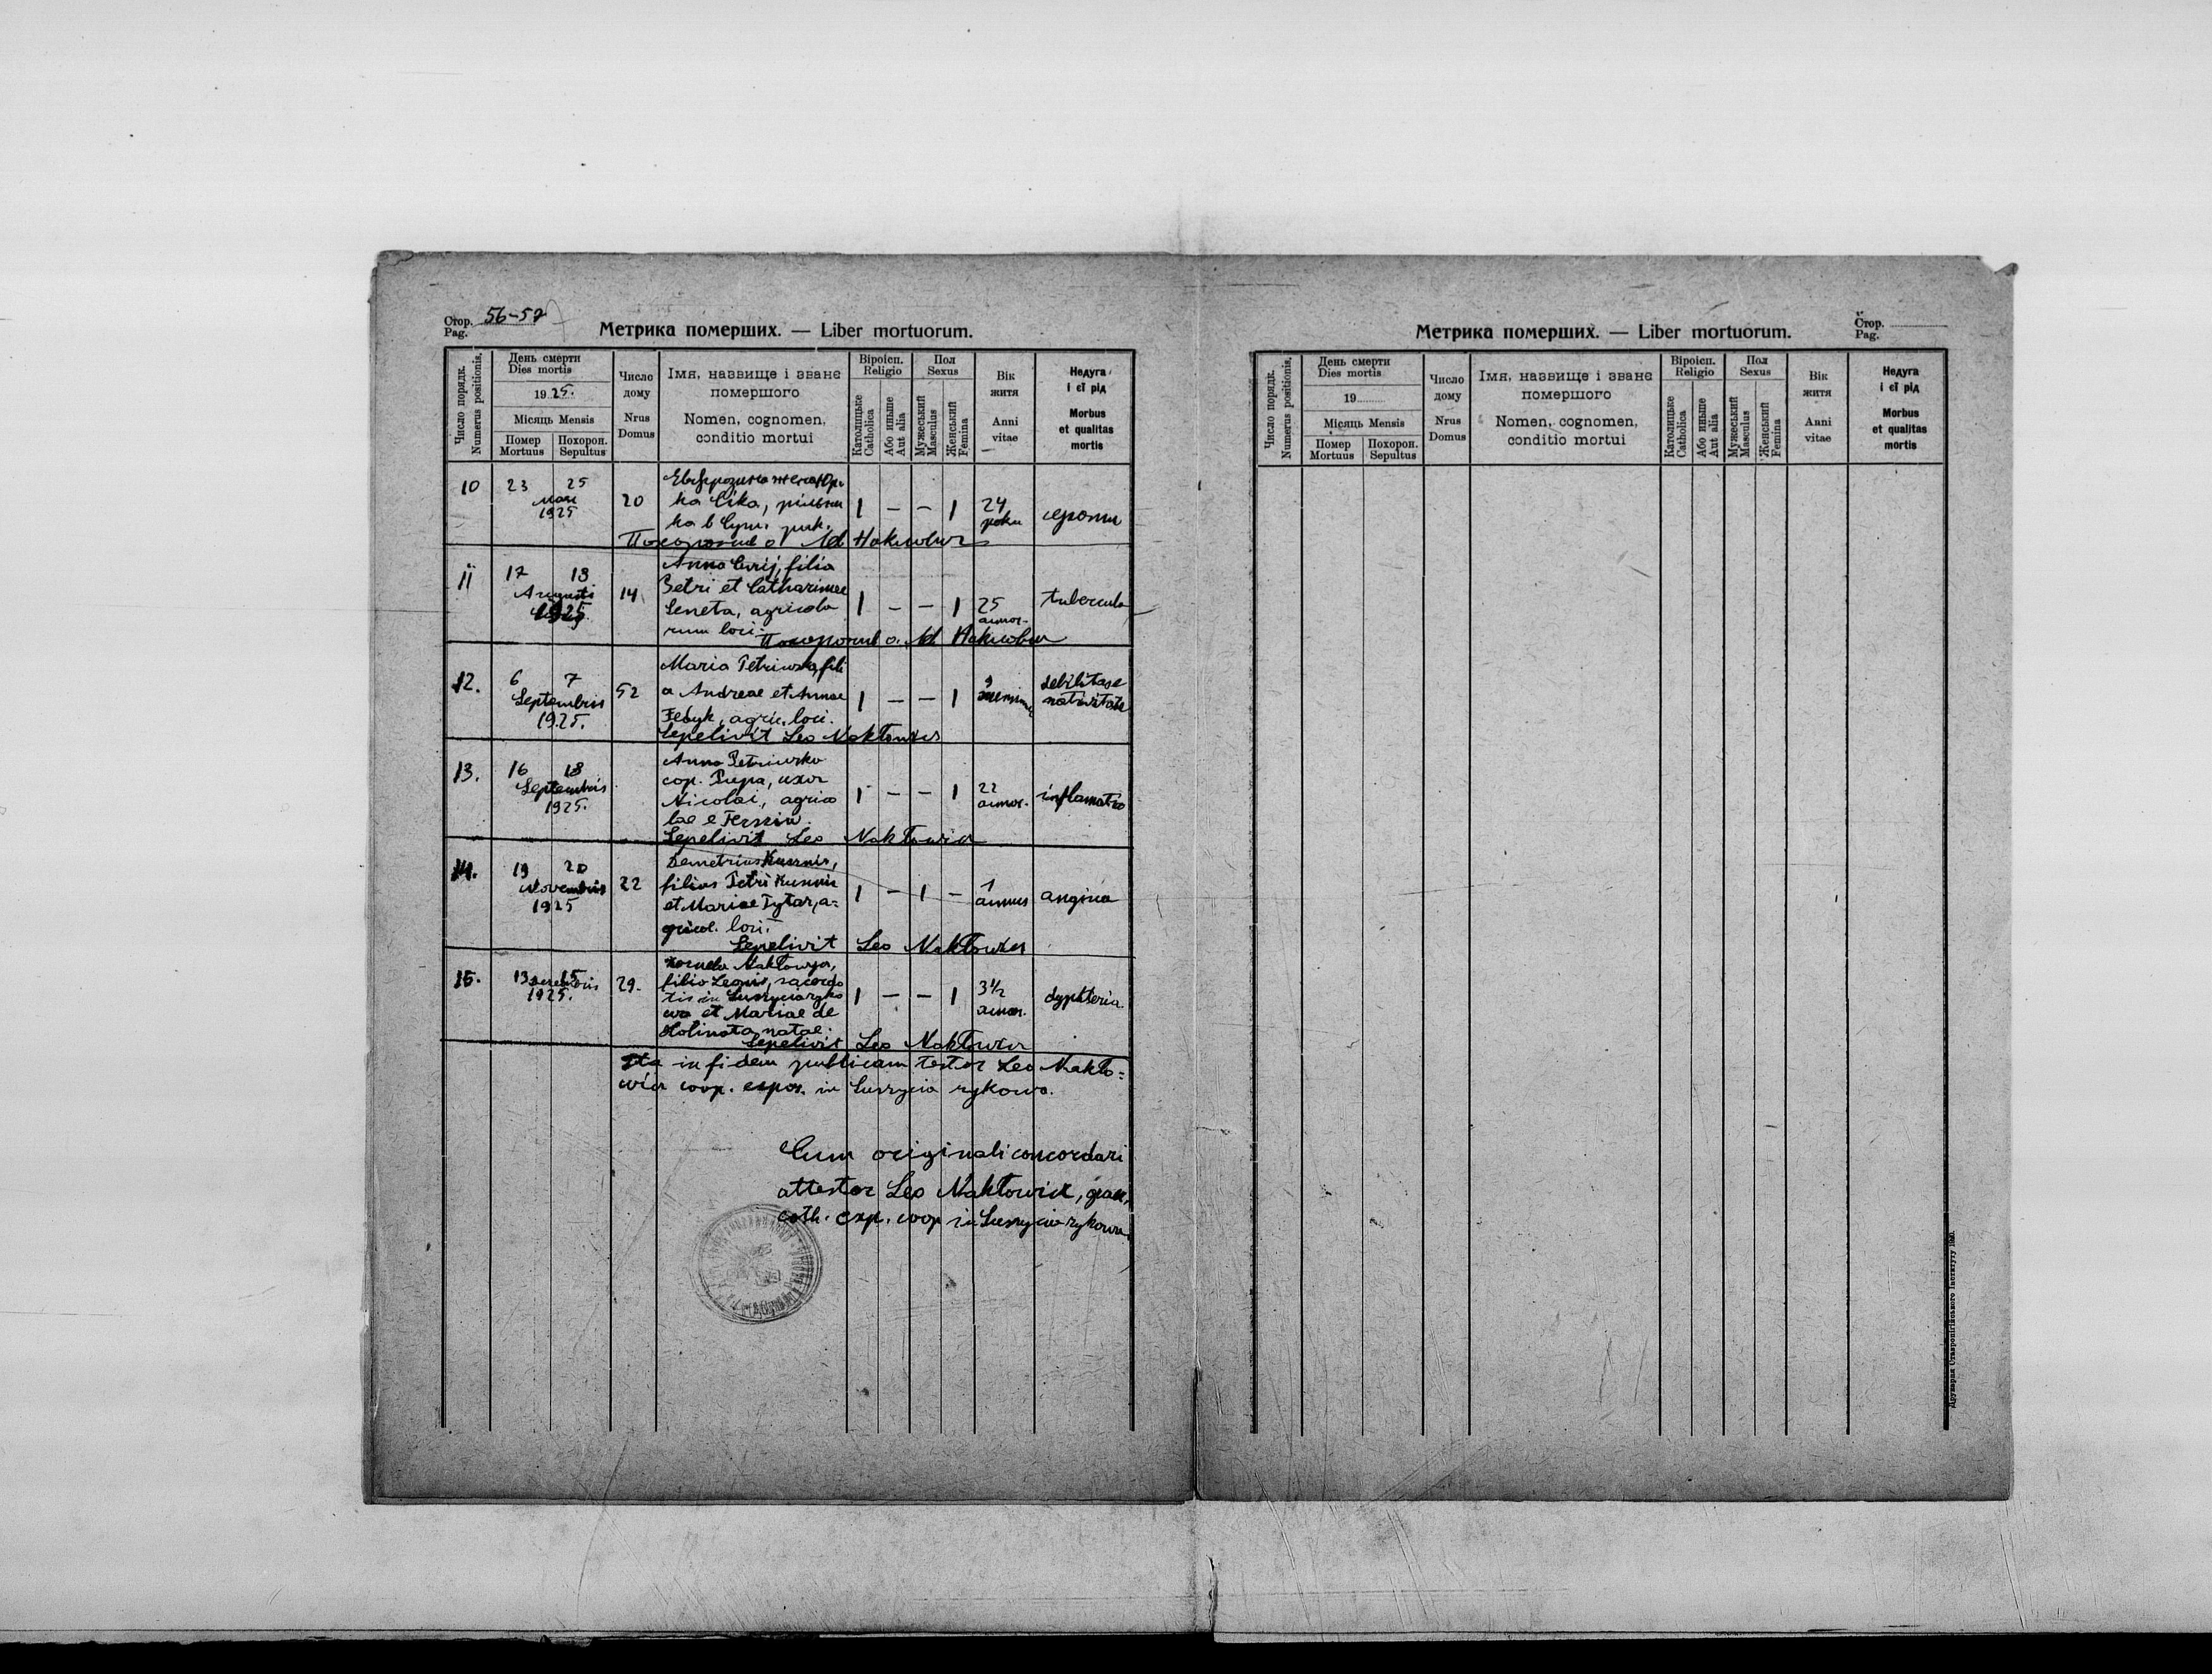 Стор. 56-57
Pag.
Метрика померших. — Liber mortuorum.
Число порядк.
Numerus positionis.
День смерти
Dies mortis
1925.
Місяць Mensis
Помер
Mortuus
Похорон.
Sepultus
Число
дому
Nrus
Domus
Імя, назвище і званє
помершого
Nomen, cognomen,
conditio mortui
Віроісп.
Religio
Католицьке
Catholica
Або иньше
Aut alia
Пол
Sexus
Мужеський
Masculus
Женський
Femina
Вік
житя
Anni
vitae
Недуга
і єї рід
Morbus
et qualitas
mortis
10
23 25
1925
20
ка Сіка, рільни
ка в
1 — — 1
24
роки
Похоронив о
11
17 18
Augusti
1925
14
Anna filia
Petri et Catharinae
Seneta, agricola
rum loci.
1 — — 1
25
annor.
tubercula
Похоронив о.
12.
6 7
Septembris
1925.
52
Maria Petriwska, fili
a Andreae et Annae
Fedyk, agric. loci.
Sepelivit Leo Nakłowicz
1 — — 1
debilitase
nativitate
13.
16 18
Septembris
1925.
Anna Petriwska
cop. Pupa, uxor
Nicolai, agrico
lae e
Sepelivit Leo Nakłowicz
1 — — 1
22
annor.
inflamatio
14.
19 20
Novembris
1925
22
Demetrius Kusznir,
filius Petri Kusznir
et Mariae Tytar, a=
gricol. loci.
Sepelivit Leo Nakłowicz
1 — 1 —
1
annus
angina
15.
13 15
Decembris
1925.
29.
Nakłowycz,
filia Leonis, sacerdo
tis in Suszycia ryko
wa et Mariae de
Holinata natae.
Sepelivit Leo Nakłowicz
1 — — 1
3 1/2
annor.
dyphteria
Ita in fidem publicam testor Leo Nakło=
wicz coop. expos. in Suszycia rykowa.
Cum originali concordari
attestor Leo Nakłowicz, graec.
cath. exp. coop in Suszycia rykowa.
Метрика померших. — Liber mortuorum.
Стор.
Pag.
Число порядк.
Numerus positionis.
День смерти
Dies mortis
19
Місяць Mensis
Помер
Mortuus
Похорон.
Sepultus
Число
дому
Nrus
Domus
Імя, назвище і званє
помершого
Nomen, cognomen,
conditio mortui
Віроісп.
Religio
Католицьке
Catholica
Або иньше
Aut alia
Пол
Sexus
Мужеський
Masculus
Женський
Femina
Вік
житя
Anni
vitae
Недуга
і єї рід
Morbus
et qualitas
mortis
Друкарня Ставропігійського Інституту